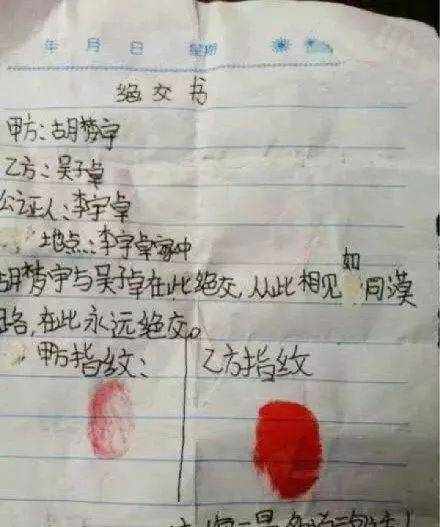 年 月 日 星期
绝交书
甲方:胡梦宇
乙方:吴子卓
公证人:李宇卓
地点:李宇卓家中
胡梦宇与吴子卓在此绝交,从此相见如同漠
路,在此永远绝交。
甲方指纹:
乙方指纹